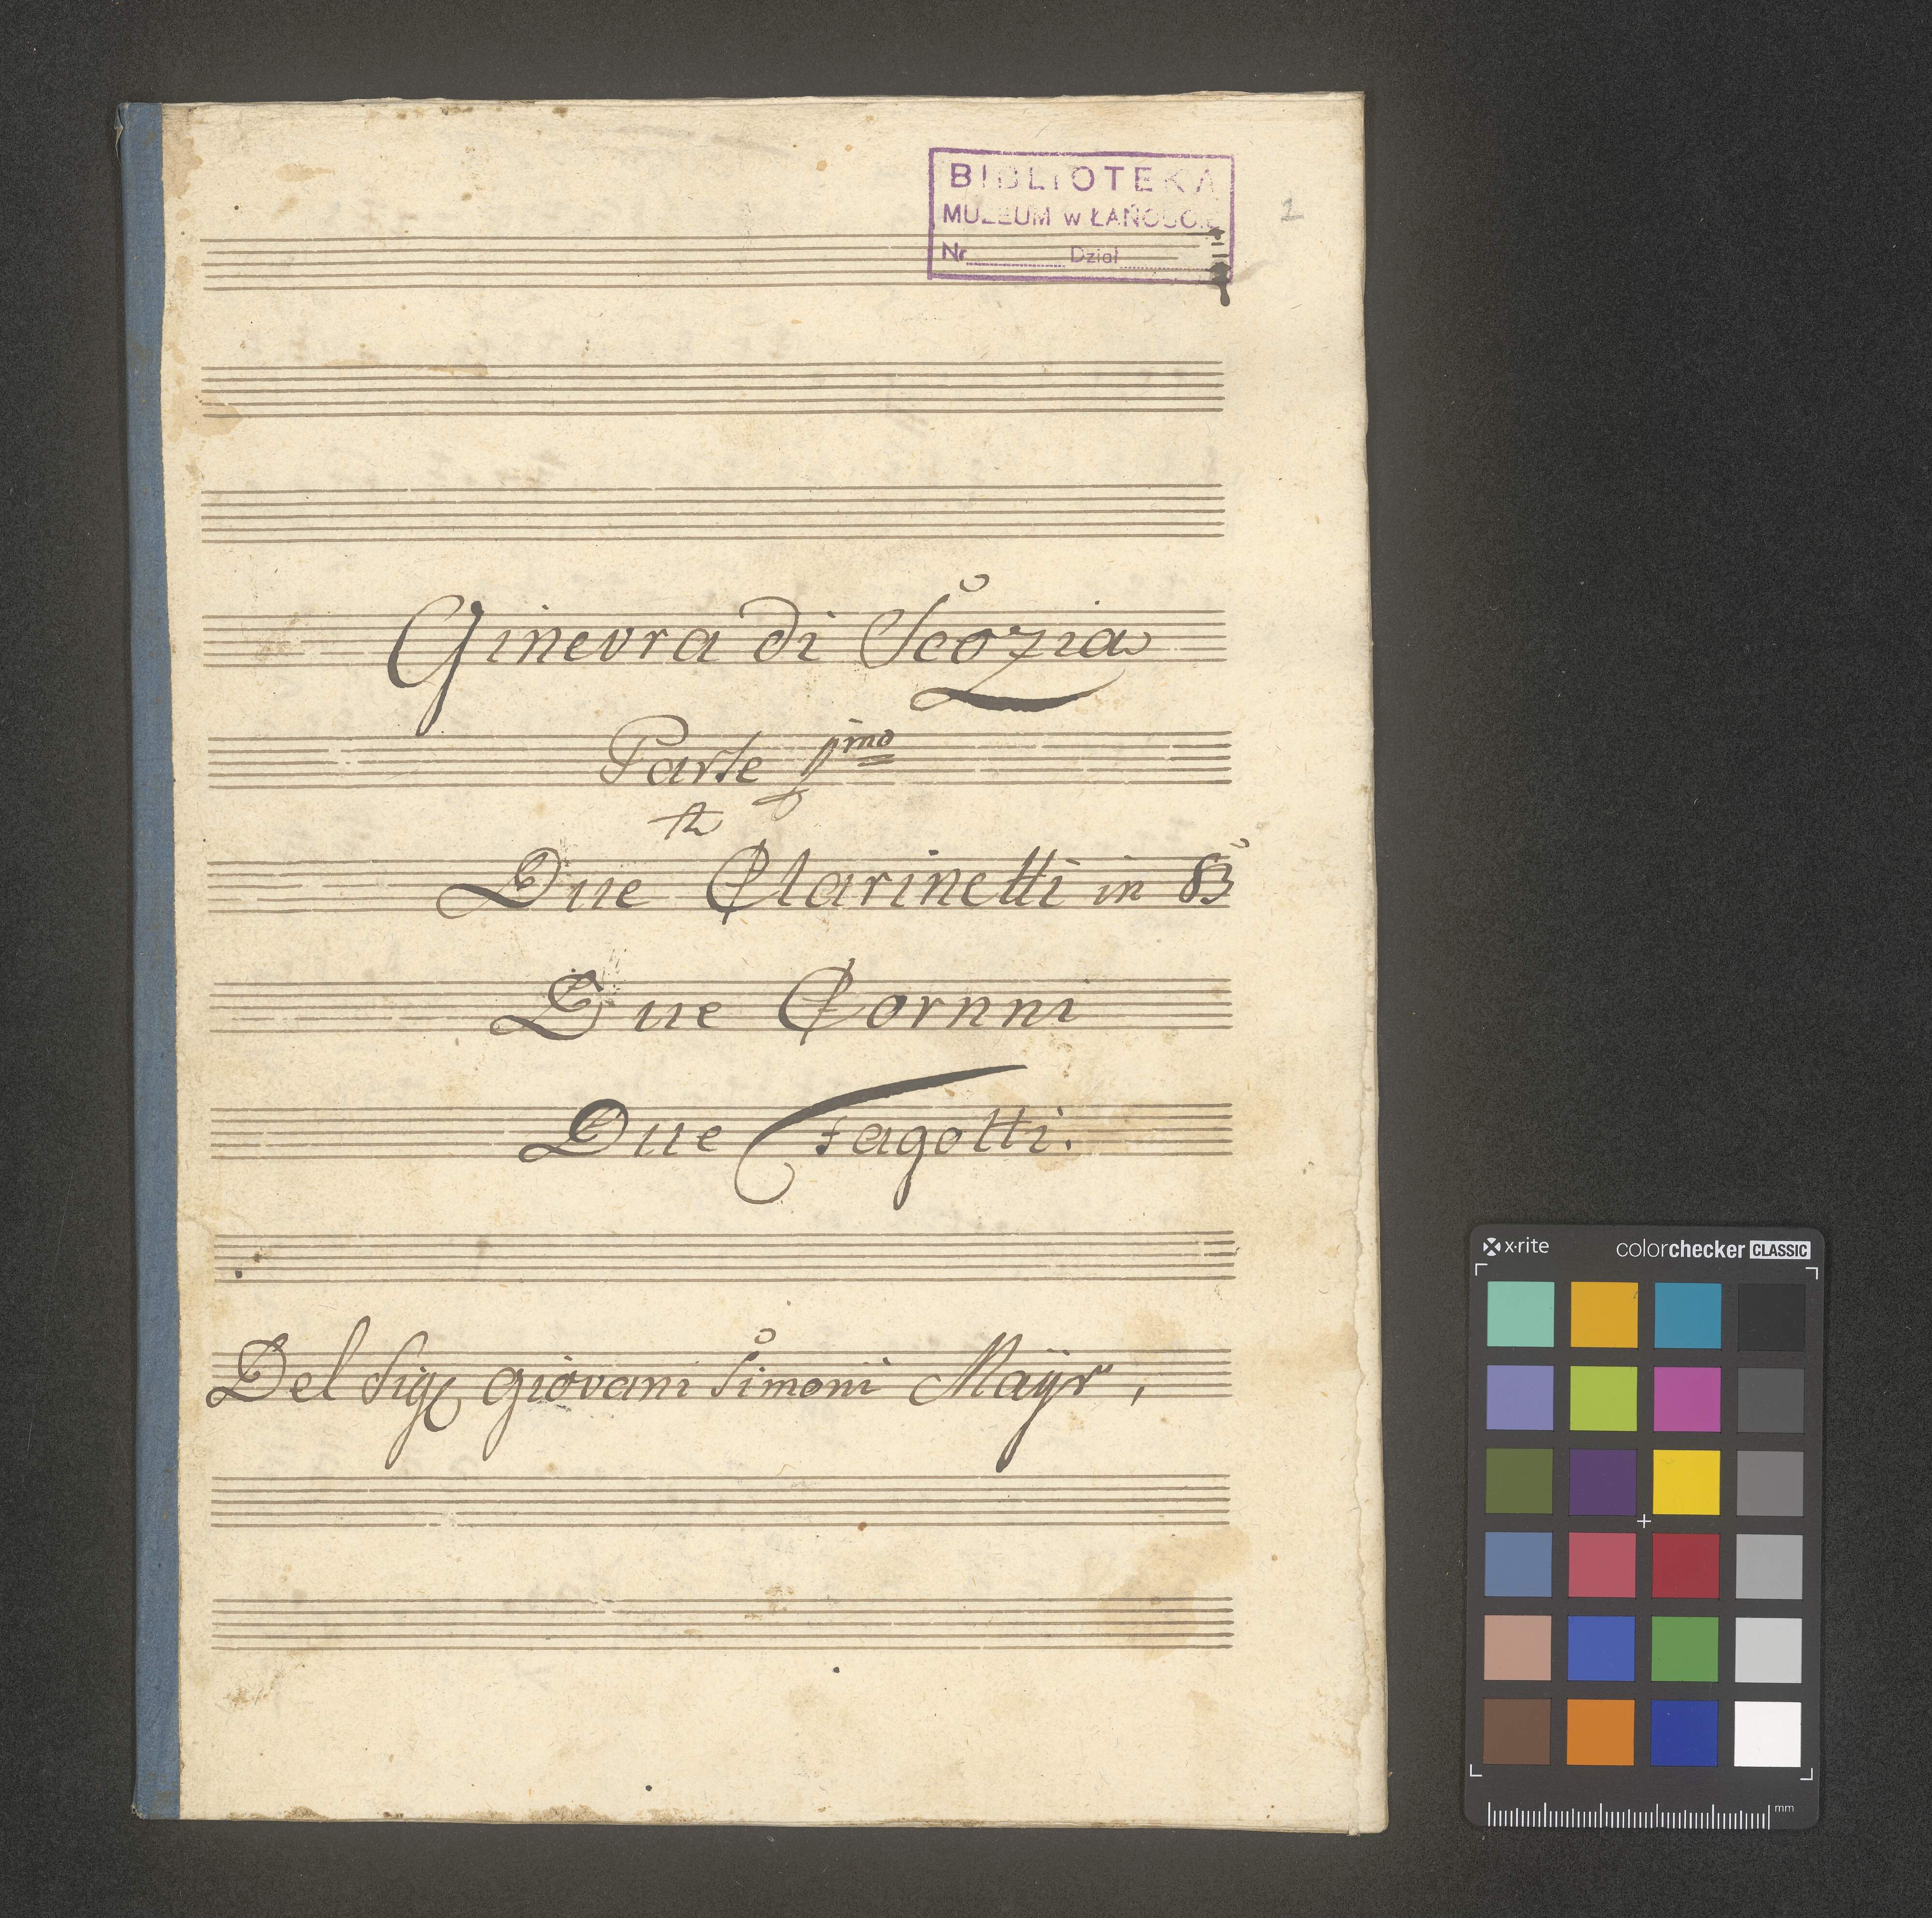 BIBLIOTEKA
MUZEUM w ŁAŃCUCIE
Nr Dział
1
Ginevra di Scozia
Parte pmo
a
Due Clarinetti in B
Due Cornni
Due Fagotti.
Del Sigr Giovani Simoni Mayr,
x·rite colorchecker CLASSIC
mm